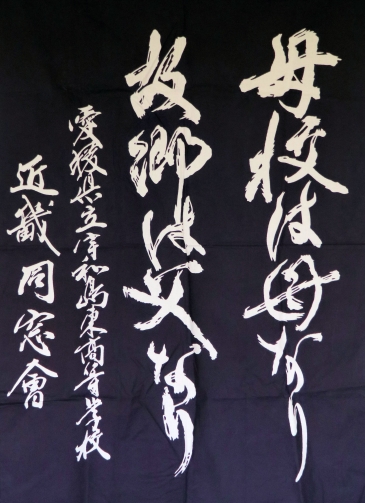 母校は母なり
故郷は父なり
愛媛県立宇和島東高等学校
近畿同窓會